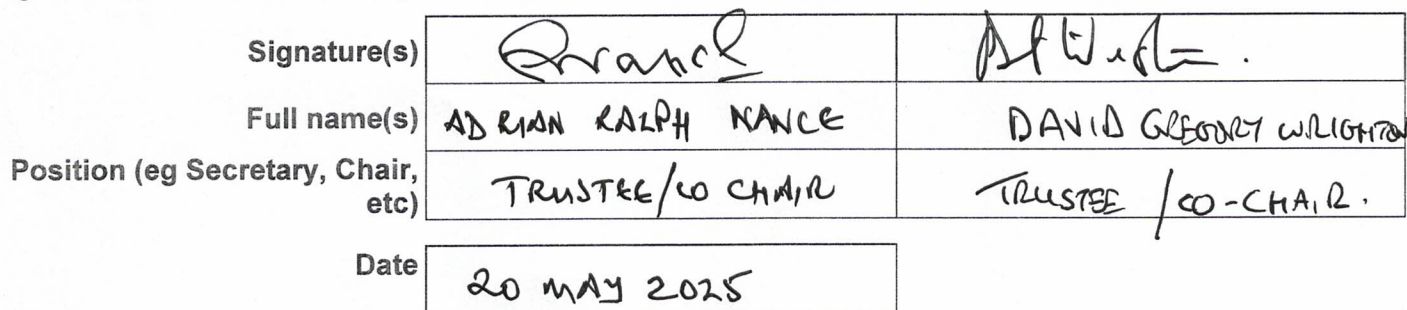 Signature(s)
Full name(s) ADRIAN RALPH NANCE DAVID GREGORY WRIGHTON
Position (eg Secretary, Chair, TRUSTEE/CO CHAIR TRUSTEE /CO-CHAIR.
etc)
Date 20 MAY 2025